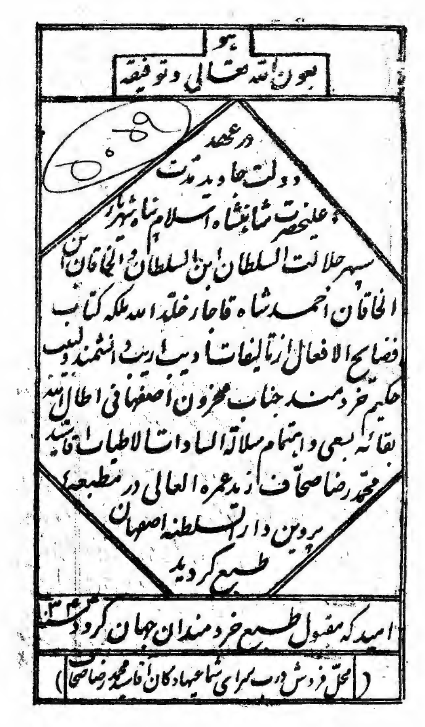 هو
بعون الله تعالی و توفیقه
در عهد
دولت جاوید مدت
علیحضرت شاهنشاه اسلام پناه شهریار
سپهر جلالت السلطان ابن السلطان و الخاقان ابن
الخاقان احمد شاه قاجار خلد الله ملکه کتاب
فضایح الافعال از تالیفات ادیب اریب دانشمند و لبیب
حکیم خردمند جناب محزون اصفهانی اطال الله
بقائه بسعی و اهتمام سلالة السادات الاطیاب آقا سید
محمد رضا صحاف زید عمره العالی در مطبعه
پروین دار السلطنه اصفهان
طبع گردید
امید که مقبول طبع خردمندان جهان گردد
(محل فروش درب سرای شاعیها دکان آقا سید محمد رضا صحاف)